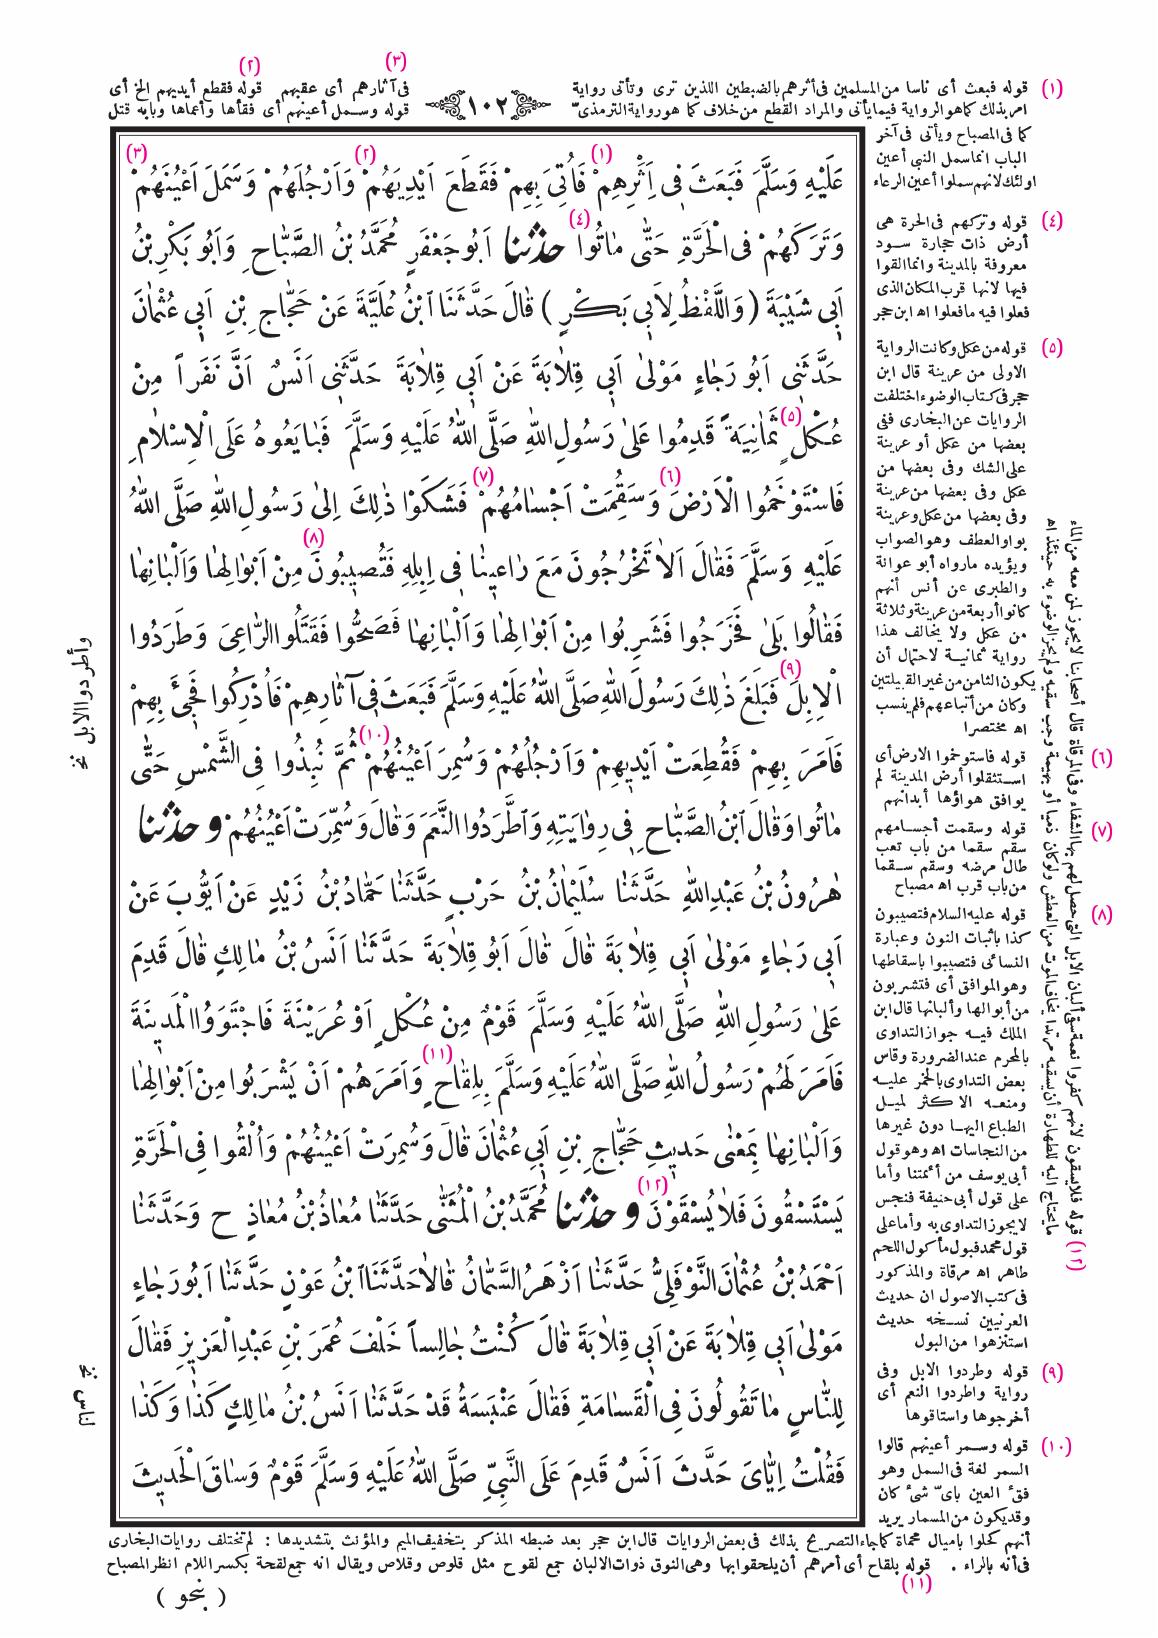 (٣)
(٢)
(١) قوله فبعث أى ناسا من المسلمين فى أثرهم بالضبطين اللذين ترى وتأتى رواية
امر بذلك كما هو الرواية فيما يأتى والمراد القطع من خلاف كما هو رواية الترمذىّ
١٠٢
فى آثارهم أى عقبهم قوله فقطع أيديهم الخ أى
قوله وسمل أعينهم أى فقأها وأعماها وبابه قتل
كما فى المصباح ويأتى فى آخر
الباب انما سمل النبي أعين
اولئك لانهم سملوا أعين الرعاء
(١) (٢) (٣)
عَلَيْهِ وَسَلَّمَ فَبَعَثَ فِى اِثْرِهِمْ فَاُتِىَ بِهِمْ فَقَطَعَ اَيْدِيَهُمْ وَاَرْجُلَهُمْ وَسَمَلَ اَعْيُنَهُمْ
(٤)
وَتَرَكَهُمْ فِى الْحَرَّةِ حَتّٰى مٰاتُوا حدثنا اَبُو جَعْفَرٍ مُحَمَّدُ بْنُ الصَّبّٰاحِ وَاَبُو بَكْرِ بْنُ
اَبِى شَيْبَةَ (وَاللَّفْظُ لِاَبِى بَكْرٍ) قٰالَ حَدَّثَنَا ابْنُ عُلَيَّةَ عَنْ حَجّٰاجِ بْنِ اَبِى عُثْمٰانَ
حَدَّثَنِى اَبُو رَجٰاءٍ مَوْلىٰ اَبِى قِلٰابَةَ عَنْ اَبِى قِلٰابَةَ حَدَّثَنِى اَنَسٌ اَنَّ نَفَراً مِنْ
(٥)
عُكْلٍ ثَمٰانِيَةً قَدِمُوا عَلىٰ رَسُولِ اللّٰهِ صَلَّى اللّٰهُ عَلَيْهِ وَسَلَّمَ فَبٰايَعُوهُ عَلَى الْاِسْلٰامِ
(٦) (٧)
فَاسْتَوْخَمُوا الْاَرْضَ وَسَقِمَتْ اَجْسٰامُهُمْ فَشَكَوْا ذٰلِكَ اِلىٰ رَسُولِ اللّٰهِ صَلَّى اللّٰهُ
(٨)
عَلَيْهِ وَسَلَّمَ فَقٰالَ اَلٰا تَخْرُجُونَ مَعَ رٰاعِينٰا فِى اِبِلِهِ فَتُصِيبُونَ مِنْ اَبْوٰالِهٰا وَاَلْبٰانِهٰا
فَقٰالُوا بَلىٰ فَخَرَجُوا فَشَرِبُوا مِنْ اَبْوٰالِهٰا وَاَلْبٰانِهٰا فَصَحُّوا فَقَتَلُوا الرّٰاعِىَ وَطَرَدُوا
(٩)
الْاِبِلَ فَبَلَغَ ذٰلِكَ رَسُولَ اللّٰهِ صَلَّى اللّٰهُ عَلَيْهِ وَسَلَّمَ فَبَعَثَ فِى آثٰارِهِمْ فَاُدْرِكُوا فَجِىءَ بِهِمْ
(١٠)
فَاَمَرَ بِهِمْ فَقُطِعَتْ اَيْدِيهِمْ وَاَرْجُلُهُمْ وَسُمِرَ اَعْيُنُهُمْ ثُمَّ نُبِذُوا فِى الشَّمْسِ حَتّٰى
مٰاتُوا وَقٰالَ ابْنُ الصَّبّٰاحِ فِى رِوٰايَتِهِ وَاَطَّرَدُوا النَّعَمَ وَقٰالَ وَسُمِّرَتْ اَعْيُنُهُمْ وحدثنا
هٰرُونُ بْنُ عَبْدِ اللّٰهِ حَدَّثَنٰا سُلَيْمٰانُ بْنُ حَرْبٍ حَدَّثَنٰا حَمّٰادُ بْنُ زَيْدٍ عَنْ اَيُّوبَ عَنْ
اَبِى رَجٰاءٍ مَوْلىٰ اَبِى قِلٰابَةَ قٰالَ قٰالَ اَبُو قِلٰابَةَ حَدَّثَنٰا اَنَسُ بْنُ مٰالِكٍ قٰالَ قَدِمَ
عَلىٰ رَسُولِ اللّٰهِ صَلَّى اللّٰهُ عَلَيْهِ وَسَلَّمَ قَوْمٌ مِنْ عُكْلٍ اَوْ عُرَيْنَةَ فَاجْتَوَوُا الْمَدِينَةَ
(١١)
فَاَمَرَ لَهُمْ رَسُولُ اللّٰهِ صَلَّى اللّٰهُ عَلَيْهِ وَسَلَّمَ بِلِقٰاحٍ وَاَمَرَهُمْ اَنْ يَشْرَبُوا مِنْ اَبْوٰالِهٰا
وَاَلْبٰانِهٰا بِمَعْنٰى حَدِيثِ حَجّٰاجِ بْنِ اَبِى عُثْمٰانَ قٰالَ وَسُمِرَتْ اَعْيُنُهُمْ وَاُلْقُوا فِى الْحَرَّةِ
(١٢)
يَسْتَسْقُونَ فَلٰا يُسْقَوْنَ وحدثنا مُحَمَّدُ بْنُ الْمُثَنّٰى حَدَّثَنٰا مُعٰاذُ بْنُ مُعٰاذٍ ح وَحَدَّثَنٰا
اَحْمَدُ بْنُ عُثْمٰانَ النَّوْفَلِىُّ حَدَّثَنٰا اَزْهَرُ السَّمّٰانُ قٰالٰا حَدَّثَنَا ابْنُ عَوْنٍ حَدَّثَنٰا اَبُو رَجٰاءٍ
مَوْلىٰ اَبِى قِلٰابَةَ عَنْ اَبِى قِلٰابَةَ قٰالَ كُنْتُ جٰالِساً خَلْفَ عُمَرَ بْنِ عَبْدِ الْعَزِيزِ فَقٰالَ
لِلنّٰاسِ مٰا تَقُولُونَ فِى الْقَسٰامَةِ فَقٰالَ عَنْبَسَةُ قَدْ حَدَّثَنٰا اَنَسُ بْنُ مٰالِكٍ كَذٰا وَكَذٰا
فَقُلْتُ اِيّٰاىَ حَدَّثَ اَنَسٌ قَدِمَ عَلَى النَّبِىِّ صَلَّى اللّٰهُ عَلَيْهِ وَسَلَّمَ قَوْمٌ وَسٰاقَ الْحَدِيثَ
(٤) قوله وتركهم فى الحرة هى
أرض ذات حجارة سود
معروفة بالمدينة وانما القوا
فيها لانها قرب المكان الذى
فعلوا فيه ما فعلوا اه ابن حجر
(٥) قوله من عكل وكانت الرواية
الاولى من عرينة قال ابن
حجر فى كتاب الوضوء اختلفت
الروايات عن البخارى ففى
بعضها من عكل أو عرينة
على الشك وفى بعضها من
عكل وفى بعضها من عرينة
وفى بعضها من عكل وعرينة
بواو العطف وهو الصواب
ويؤيده مارواه أبو عوانة
والطبرى عن أنس أنهم
كانوا أربعة من عرينة وثلاثة
من عكل ولا يخالف هذا
رواية ثمانية لاحتمال أن
يكون الثامن من غير القبيلتين
وكان من أتباعهم فلم ينسب
اه مختصرا
(٦) قوله فاستوخموا الارض أى
استثقلوا أرض المدينة لم
يوافق هواؤها أبدانهم
(٧) قوله وسقمت أجسامهم
سقم سقما من باب تعب
طال مرضه وسقم سقما
من باب قرب اه مصباح
(٨) قوله عليه السلام فتصيبون
كذا باثبات النون وعبارة
النسائى فتصيبوا باسقاطها
وهو الموافق أى فتشربون
من أبوالها وألبانها قال ابن
الملك فيه جواز التداوى
بالمحرم عند الضرورة وقاس
بعض التداوى بالخمر عليه
ومنعه الاكثر لميل
الطباع اليها دون غيرها
من النجاسات اه وهو قول
أبى يوسف من أئمتنا وأما
على قول أبى حنيفة فنجس
لا يجوز التداوى به وأما على
قول محمد فبول مأكول اللحم
طاهر اه مرقاة والمذكور
فى كتب الاصول ان حديث
العرنيين نسخه حديث
استنزهوا من البول
(٩) قوله وطردوا الابل وفى
رواية واطردوا النعم أى
أخرجوها واستاقوها
(١٠) قوله وسمر أعينهم قالوا
السمر لغة فى السمل وهو
فقء العين باىّ شىء كان
وقد يكون من المسمار يريد
أنهم كحلوا باميال محماة كما جاء التصريح بذلك فى بعض الروايات قال ابن حجر بعد ضبطه المذكر بتخفيف الميم والمؤنث بتشديدها : لم تختلف روايات البخارى
فى أنه بالراء . قوله بلقاح أى أمرهم أن يلحقوا بها وهى النوق ذوات الالبان جمع لقوح مثل قلوص وقلاص ويقال انه جمع لقحة بكسر اللام انظر المصباح
(١١)
(١٢) قوله فلا يسقون لانهم كفروا نعمة سقى ألبان الابل التى حصل لهم بها الشفاء وفى المرقاة قال أصحابنا لا يجوز لمن معه من الماء
ما يحتاج اليه للطهارة أن يسقيه مرتدا يخاف الموت من العطش ولو كان ذميا أو بهيمة وجب سقيه ولم يجز الوضوء به حينئذ اه
وأطردوا الابل نخ
لناس نخ
( بنحو )